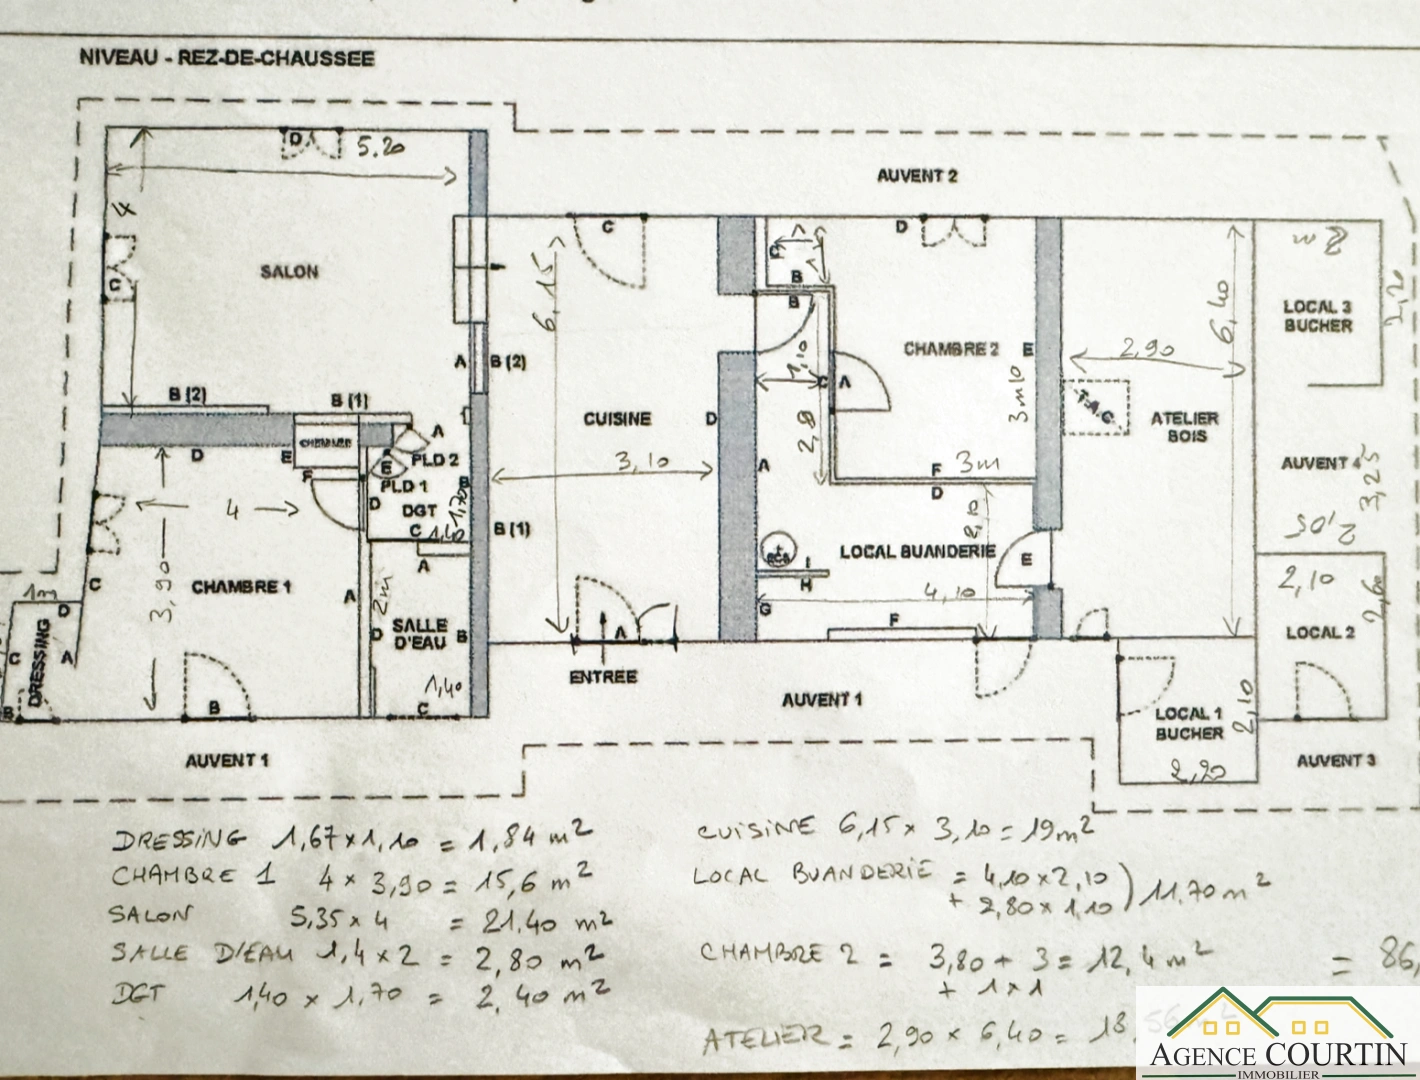 NIVEAU - REZ-DE-CHAUSSEE
D
5.20
AUVENT 2
4
C
D
C
SALON
6,15
B
B
LOCAL 3
BUCHER
2,20
6,40
C
A
B (2)
1,10
CHAMBRE 2
E
2,90
B (2)
B (1)
CUISINE
D
C
A
3m10
T.A.C.
ATELIER
BOIS
CHEMINEE
A
D
E
F
PLD 2
E
PLD 1
B
3,10
A
2,8
F
3m
D
AUVENT 4
3,25
4
D
DGT
1,70
C
1,40
B (1)
2,10
2,05
C
CHAMBRE 1
3,90
A
A
LOCAL BUANDERIE
E
I
H
2,10
2,60
1m
D
DRESSING
C
A
B
2m
D
SALLE
D'EAU
B
G
4,10
F
LOCAL 2
A
ENTREE
B
1,40
C
AUVENT 1
LOCAL 1
BUCHER
2,10
2,20
AUVENT 1
AUVENT 3
DRESSING 1,67 x 1,10 = 1,84 m²
CHAMBRE 1 4 x 3,90 = 15,6 m²
SALON 5,35 x 4 = 21,40 m²
SALLE D'EAU 1,4 x 2 = 2,80 m²
DGT 1,40 x 1,70 = 2,40 m²
CUISINE 6,15 x 3,10 = 19m²
LOCAL BUANDERIE = 4,10 x 2,10
+ 2,80 x 1,10 ) 11,70 m²
CHAMBRE 2 = 3,80 + 3 = 12,4 m²
+ 1 x 1
= 86,
ATELIER = 2,90 x 6,40 = 18,56 m²
AGENCE COURTIN
IMMOBILIER